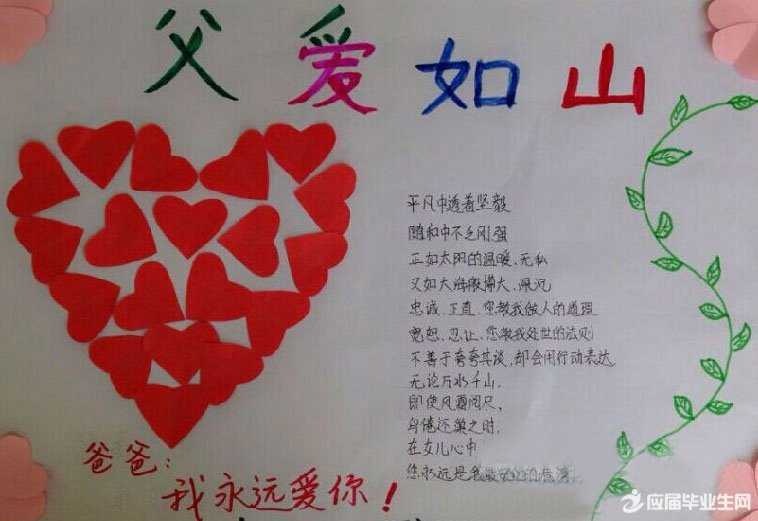 父爱如山
平凡中透着坚毅
随和中不乏刚强
正如太阳的温暖、无私
又如大海般博大、深沉
忠诚、正直、您教我做人的道理
宽恕、忍让、您教我处世的法则
不善于夸夸其谈,却会用行动表达
无论万水千山,
即使风霜闭尺,
鸟倦还巢之时,
在女儿心中
您永远是我
爸爸:
我永远爱你!
应届毕业生网